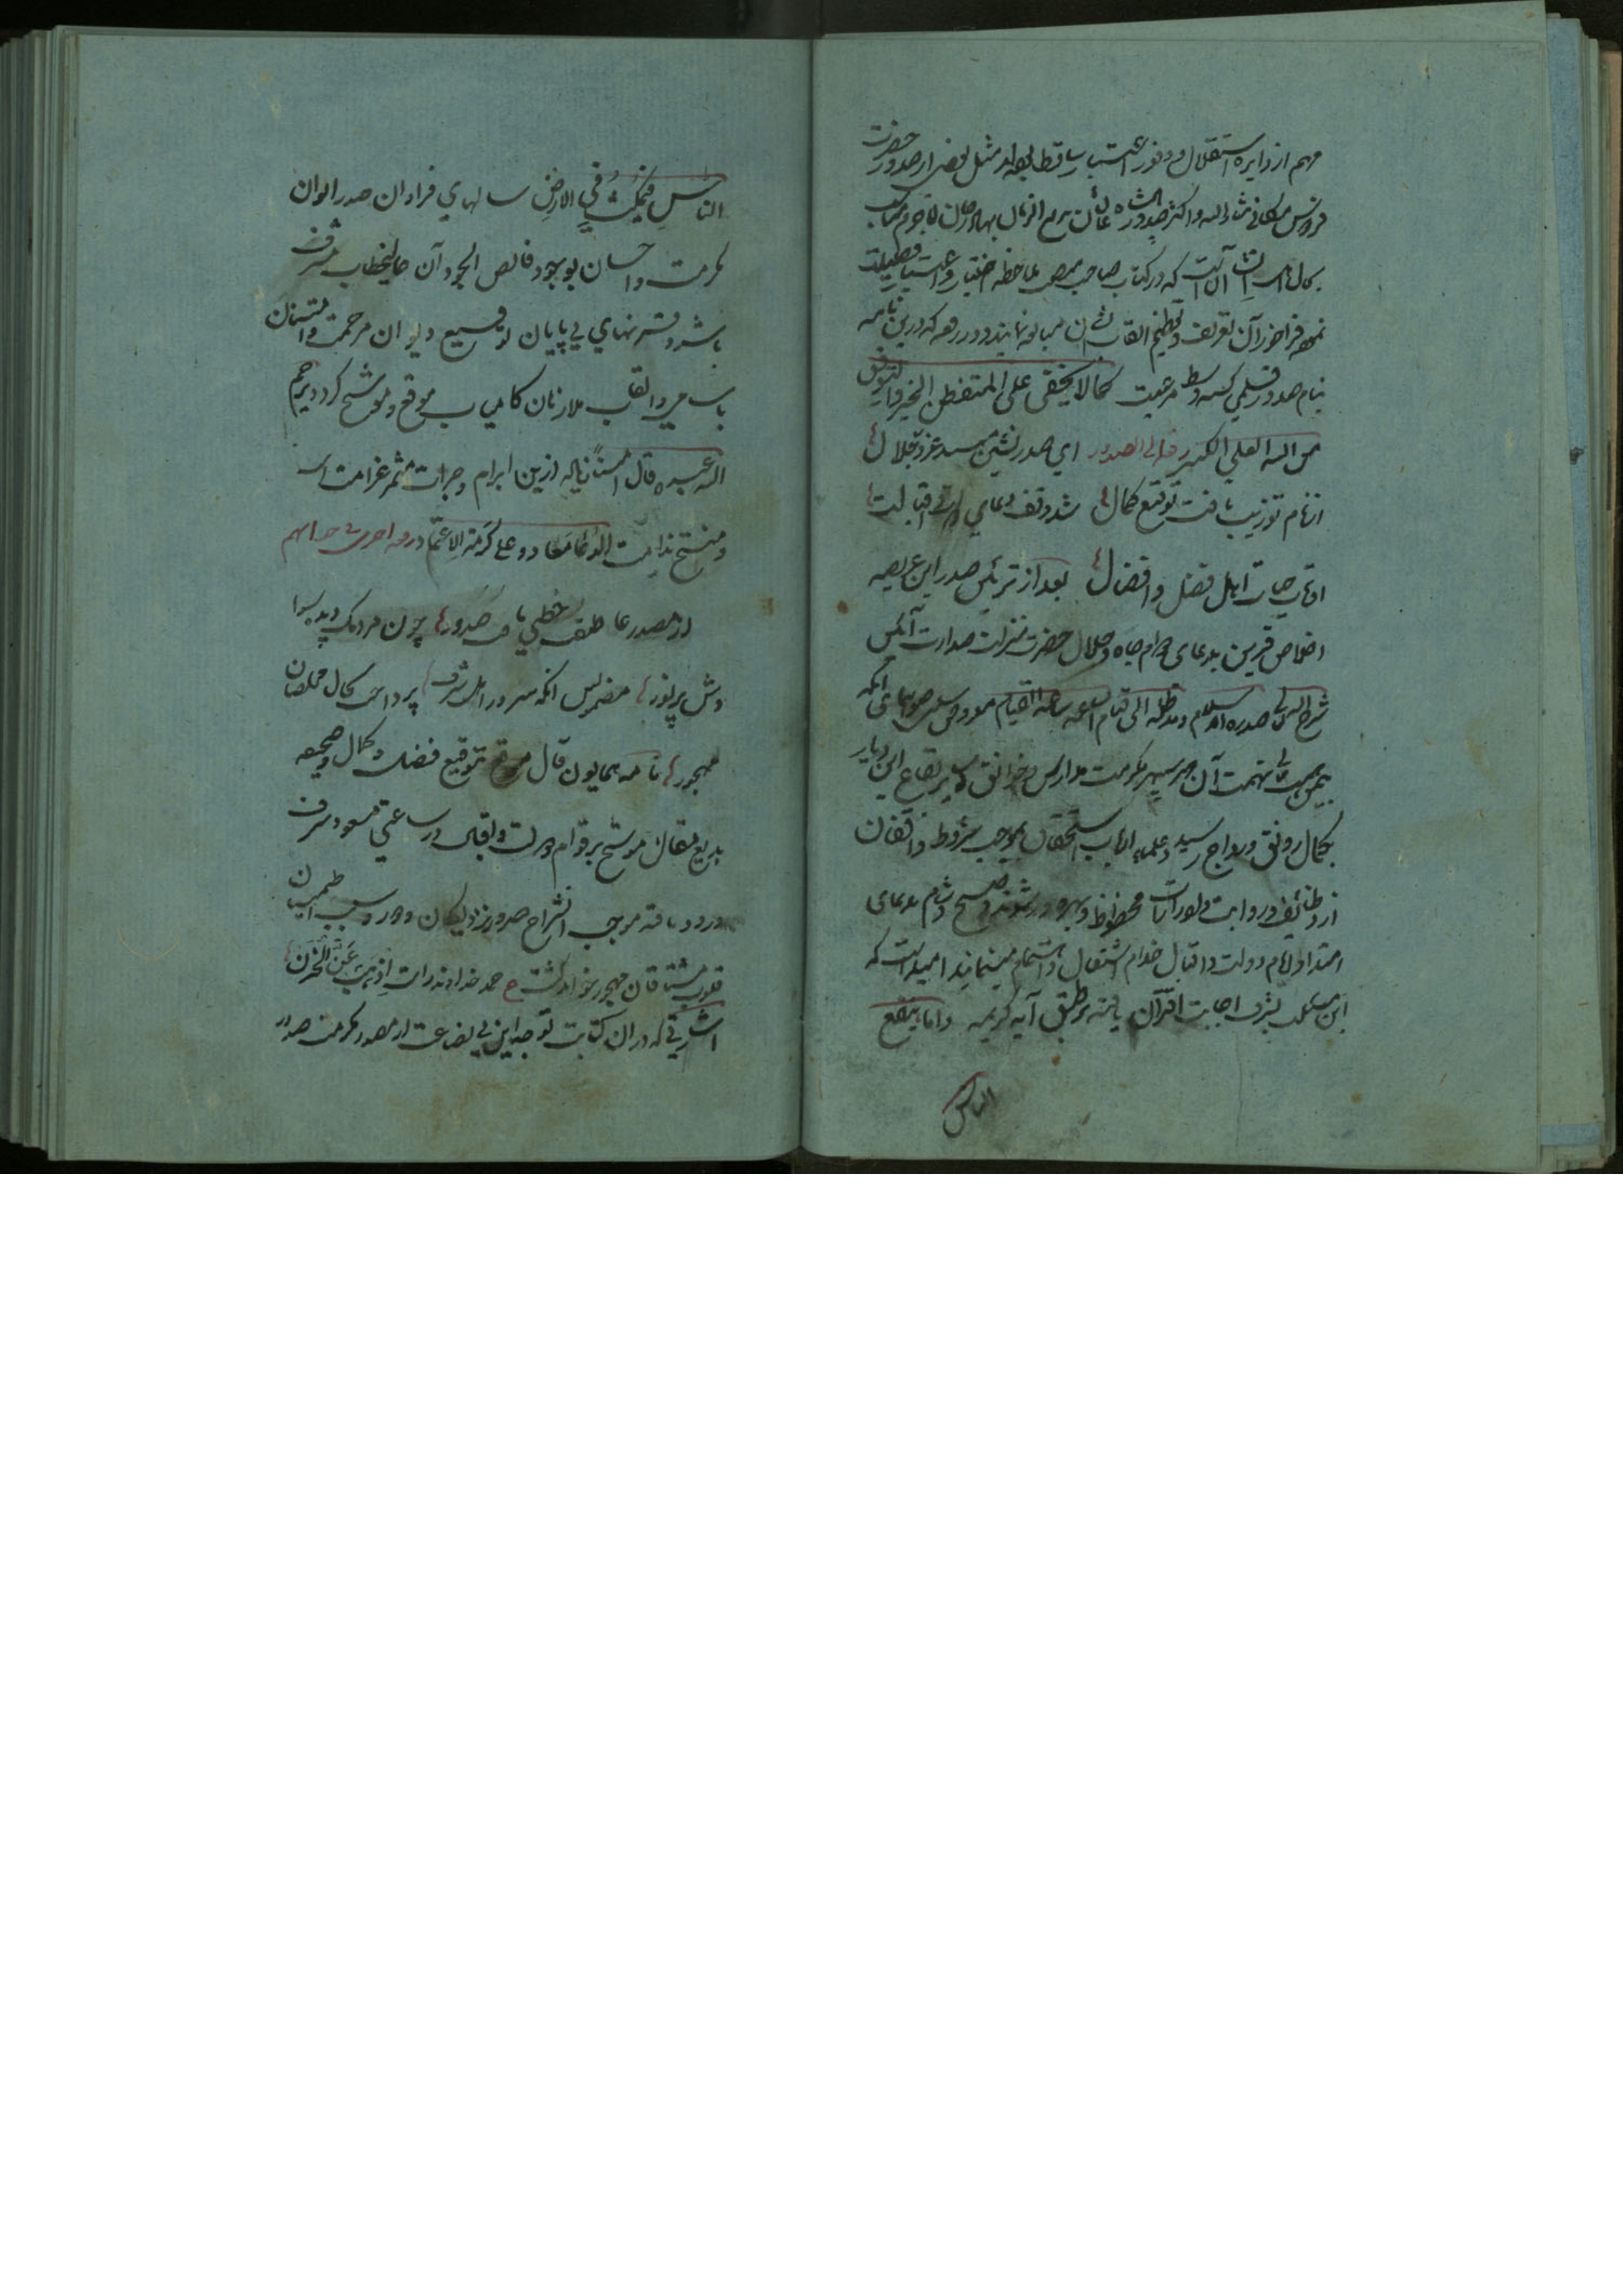 مهم از دایره استقلال و وفور اعتبار ساقط بوده‌اند مثل بعضی از صدور حضرت
فردوس مکانی
بحال این آنست که در کتاب صاحب منصب ملاحظه اختیار و اعتبار و فضیلت
نموده فراخور آن تعریف و تعظیم القاب شان مبالغه نمایند و در رقعه که درین نامه
بنام صدور قلمی گشته وسط مرعیست کما لا یخفی علی المتفطن الخبیر والتوفیق
من الله العلی الکبیر رقعه الی الصدور ای صدرنشین مسند عز و جلال
از نام تو زیب یافت توقیع کمال شد وقف دعای
اوقات حیات اهل فضل و افضال بعد از تزئین صدر این عریضه
اخلاص قرین بدعای دوام جاه و جلال حضرت منزلت صدارت آئین
شرح الله صدره للاسلام و مد ظله الی قیام الساعه و ساعه القیام معروض میدارد آنکه
بیمن همت آن سپهر مکرمت مدارس و خوانق و سایر بقاع این دیار
بکمال رونق و رواج رسید و علما و ارباب استحقاق بموجب شروط واقفان
از وظائف و رواتب و ادرارات محظوظ و بهره‌ور شوند و صبح و شام بدعای
امتداد ایام دولت و اقبال خدام اشتغال و اهتمام مینمایند امید آنست که
این مسئلت بشرف اجابت اقتران یافته بر طبق آیه کریمه واما ما ینفع
الناس
الناس فیمکث فی الارض سالهای فراوان صدر ایوان
مکرمت و احسان بوجود فائض الجود آن عالیخطاب مشرف
باشد و قرنهای بی پایان توقیع دیوان مرحمت و امتنان
باسامی و القاب ملازمان کامیاب موقع و موشح گردد و یرحم
الله عبدا قال آمینا زیاده ازین ابرام و جرات مثمر غرامت است
و منتج ندامت الدعا معاد و علی کرمه الاعتماد رقعه اخری فی جوابهم
از مصدر عاطفت خطی یافت صدور چون مردمک دیده سوا
دش پر نور مضمونش آنکه سرور اهل شرف پرداخت بحال مخلصان
مهجور نامه همایون فال موقع بتوقیع فضل و کمال و صحیفه
بدیع مقال موشح برقوم دولت و اقبال در ساعتی مسعود شرف
ورود یافته موجب انشراح صدور نزدیکان و دور و سبب اطمینان
قلوب مشتاقان مهجور خواهد گشت ع حمد خداوند را اذهب عنا الحزن
اشارتی که در آن کتابت توجه این بی بضاعت از مصدر مکرمت صدور